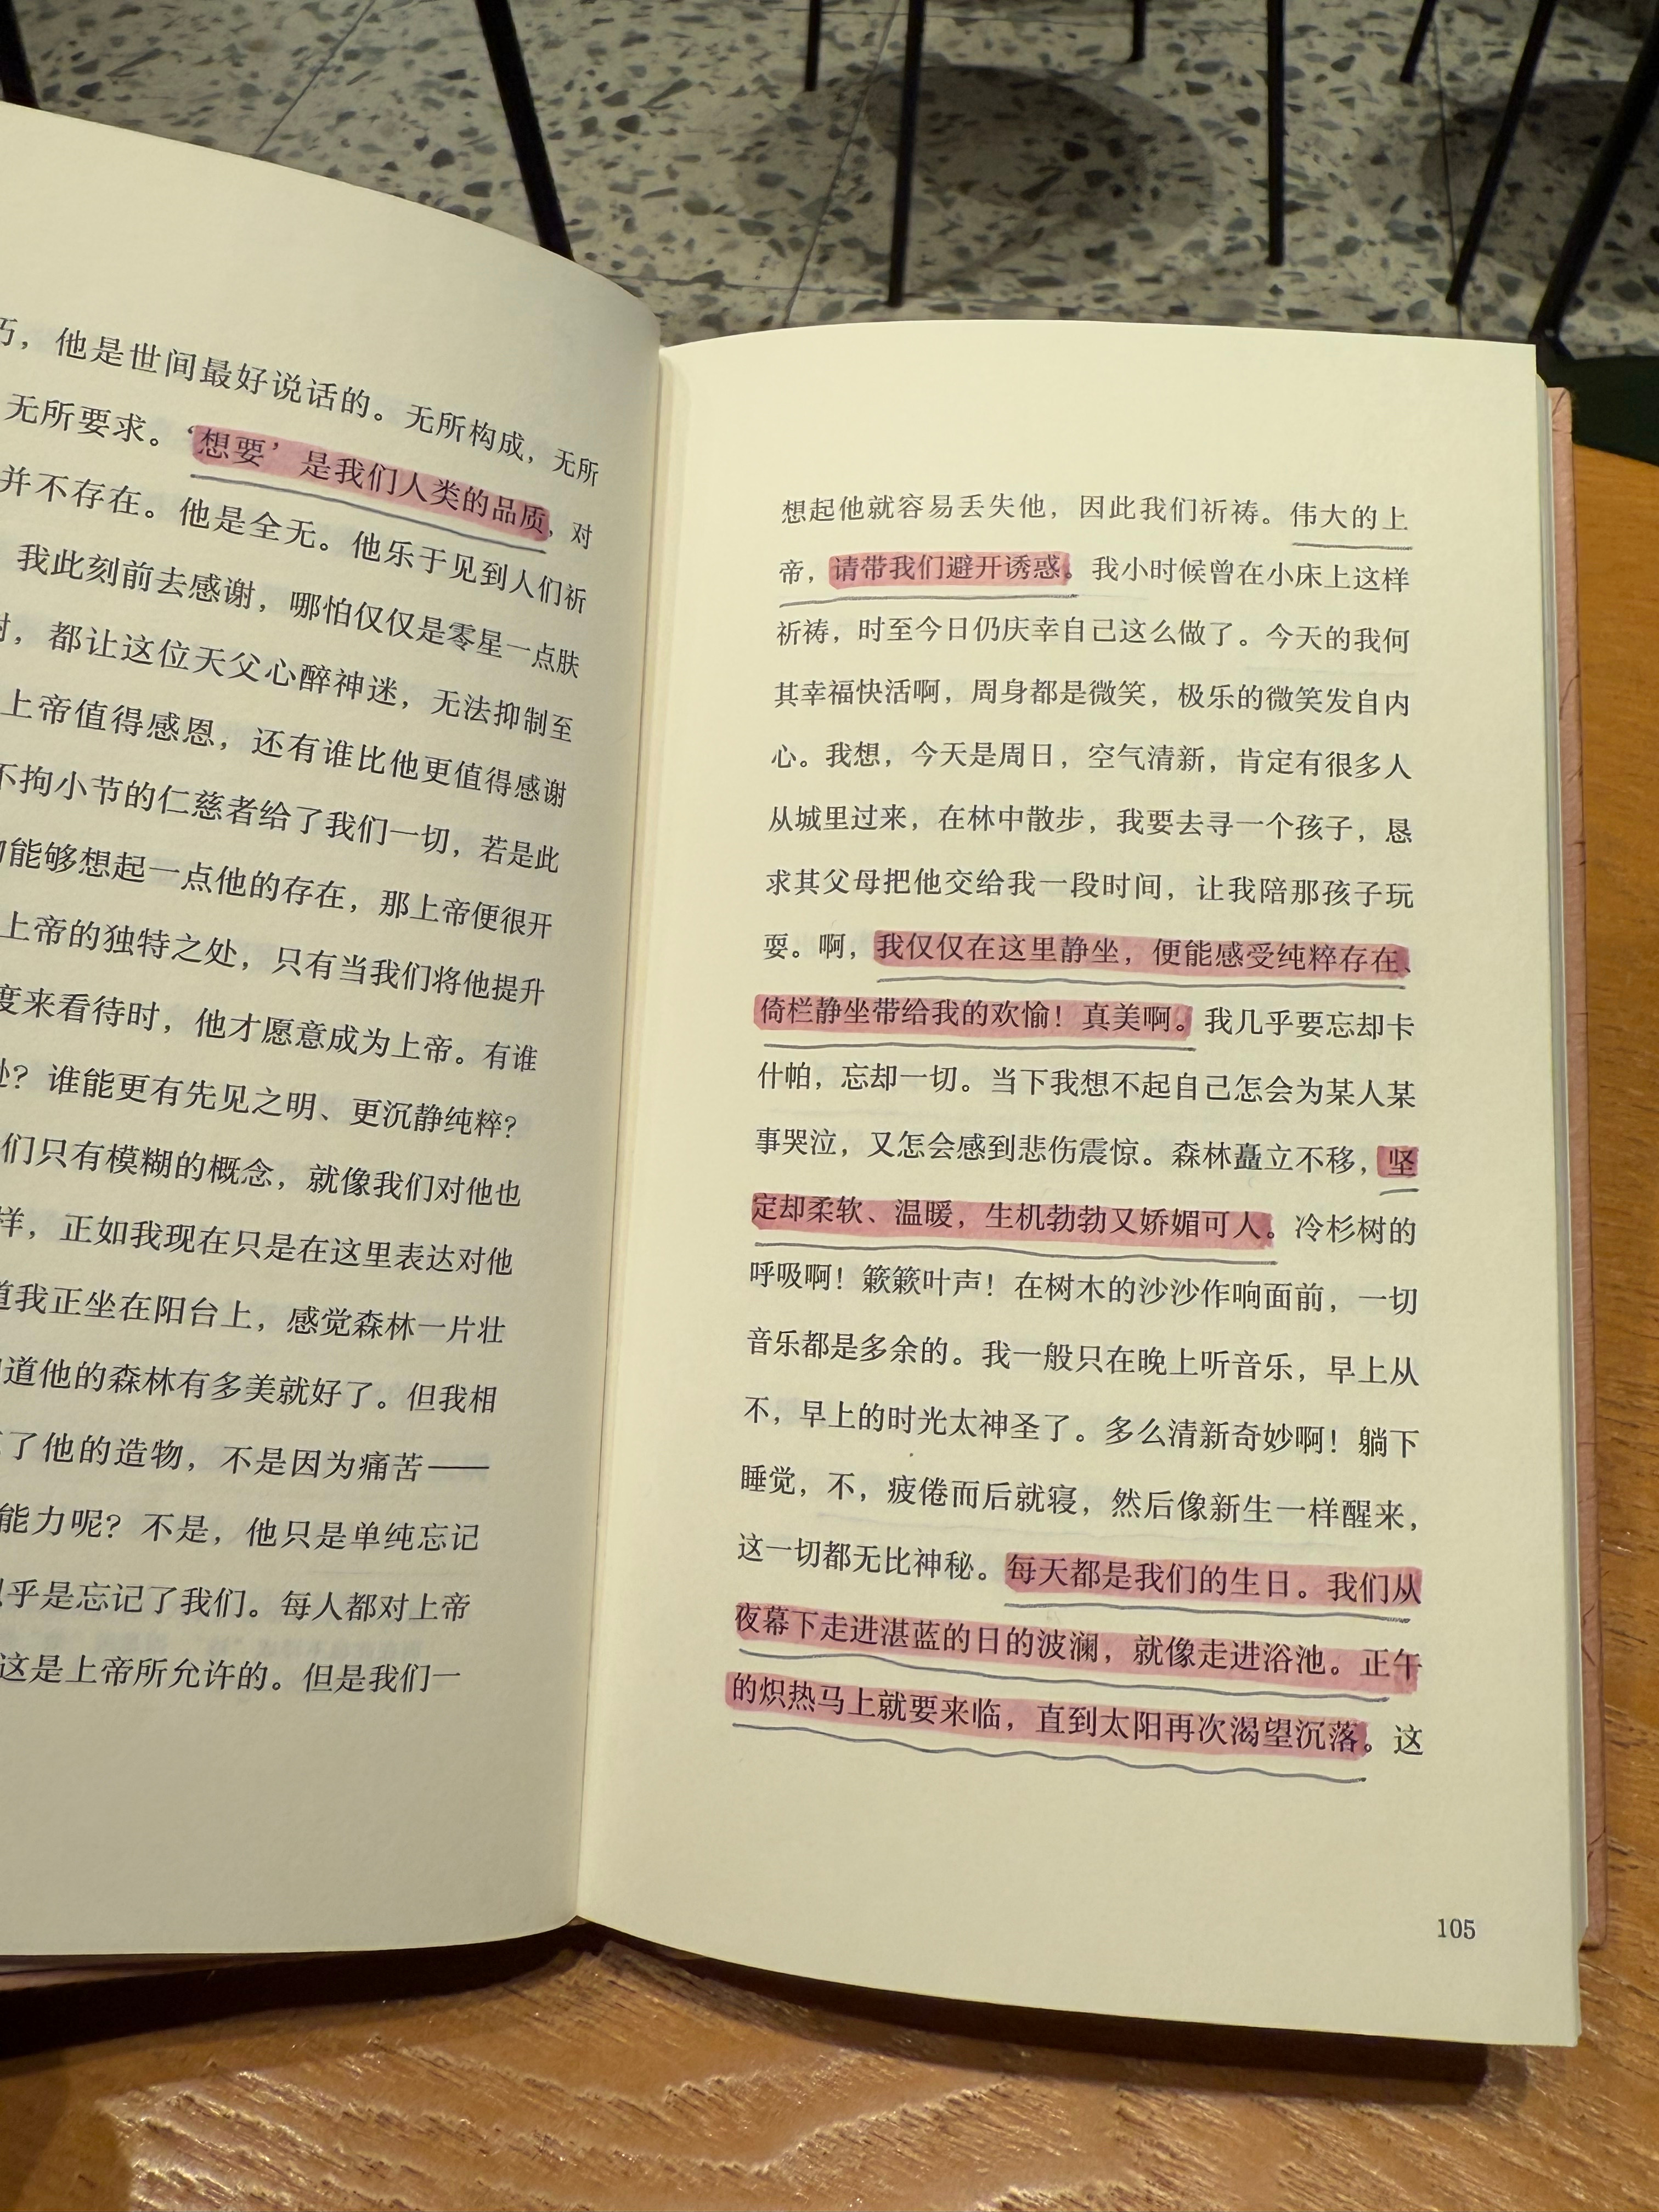 ，他是世间最好说话的。无所构成，无所
无所要求。‘想要’是我们人类的品质，对
并不存在。他是全无。他乐于见到人们祈
我此刻前去感谢，哪怕仅仅是零星一点肤
，都让这位天父心醉神迷，无法抑制至
上帝值得感恩，还有谁比他更值得感谢
不拘小节的仁慈者给了我们一切，若是此
能够想起一点他的存在，那上帝便很开
上帝的独特之处，只有当我们将他提升
度来看待时，他才愿意成为上帝。有谁
？谁能更有先见之明、更沉静纯粹？
们只有模糊的概念，就像我们对他也
样，正如我现在只是在这里表达对他
道我正坐在阳台上，感觉森林一片壮
道他的森林有多美就好了。但我相
了他的造物，不是因为痛苦——
能力呢？不是，他只是单纯忘记
乎是忘记了我们。每人都对上帝
这是上帝所允许的。但是我们一
想起他就容易丢失他，因此我们祈祷。伟大的上
帝，请带我们避开诱惑。我小时候曾在小床上这样
祈祷，时至今日仍庆幸自己这么做了。今天的我何
其幸福快活啊，周身都是微笑，极乐的微笑发自内
心。我想，今天是周日，空气清新，肯定有很多人
从城里过来，在林中散步，我要去寻一个孩子，恳
求其父母把他交给我一段时间，让我陪那孩子玩
耍。啊，我仅仅在这里静坐，便能感受纯粹存在、
倚栏静坐带给我的欢愉！真美啊。我几乎要忘却卡
什帕，忘却一切。当下我想不起自己怎会为某人某
事哭泣，又怎会感到悲伤震惊。森林矗立不移，坚
定却柔软、温暖，生机勃勃又娇媚可人。冷杉树的
呼吸啊！簌簌叶声！在树木的沙沙作响面前，一切
音乐都是多余的。我一般只在晚上听音乐，早上从
不，早上的时光太神圣了。多么清新奇妙啊！躺下
睡觉，不，疲倦而后就寝，然后像新生一样醒来，
这一切都无比神秘。每天都是我们的生日。我们从
夜幕下走进湛蓝的日的波澜，就像走进浴池。正午
的炽热马上就要来临，直到太阳再次渴望沉落。这
105